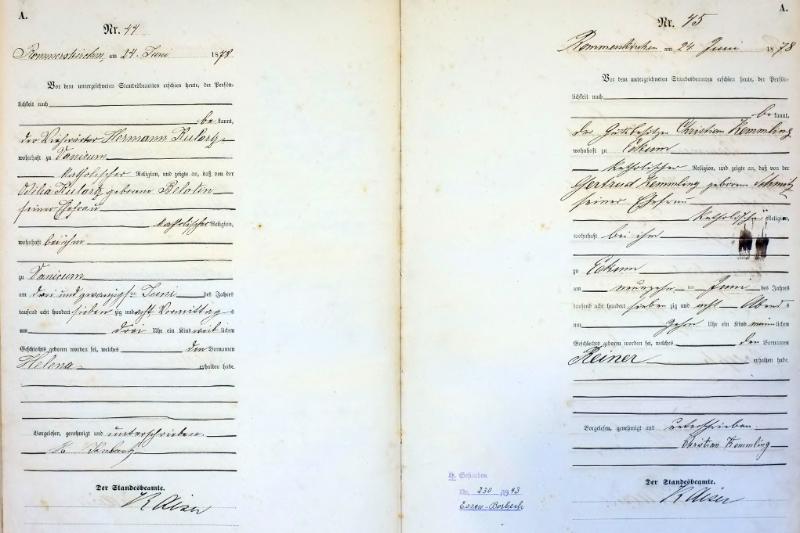 A.
Nr. 44
Rommerskirchen, am 24. Juni 1878.
Vor dem unterzeichneten Standesbeamten erschien heute, der Persön-
lichkeit nach
be kannt,
der Hermann
wohnhaft zu Vanicum
katholischer Religion, und zeigte an, daß von der
geborene
seiner Ehefrau
katholischer Religion,
wohnhaft bei ihm
zu Vanicum
am drei und zwanzigsten Juni des Jahres
tausend acht hundert sieben zig und acht Vormittag s
um drei Uhr ein Kind weib lichen
Geschlechts geboren worden sei, welches den Vornamen
Helena
erhalten habe.
Vorgelesen, genehmigt und unterschrieben
H.
Der Standesbeamte.
Kaiser
A.
Nr. 45
Rommerskirchen am 24 Juni 1878
Vor dem unterzeichneten Standesbeamten erschien heute, der Persön-
lichkeit nach
be kannt,
der Gutsbesitzer Christian Kemmling
wohnhaft zu Eckum
katholischer Religion, und zeigte an, daß von der
Gertrud Kemmling geboren Schmitz
seiner Ehefrau
katholische Religion,
wohnhaft bei ihm
zu Eckum
am neunzehn ten Juni des Jahres
tausend acht hundert sieben zig und acht Abend s
um zehn Uhr ein Kind männ lichen
Geschlechts geboren worden sei, welches den Vornamen
Reiner
erhalten habe.
Vorgelesen, genehmigt und unterschrieben
Christian Kemmling
Der Standesbeamte.
Kaiser
Nr. 230 1943
Essen-Borbeck